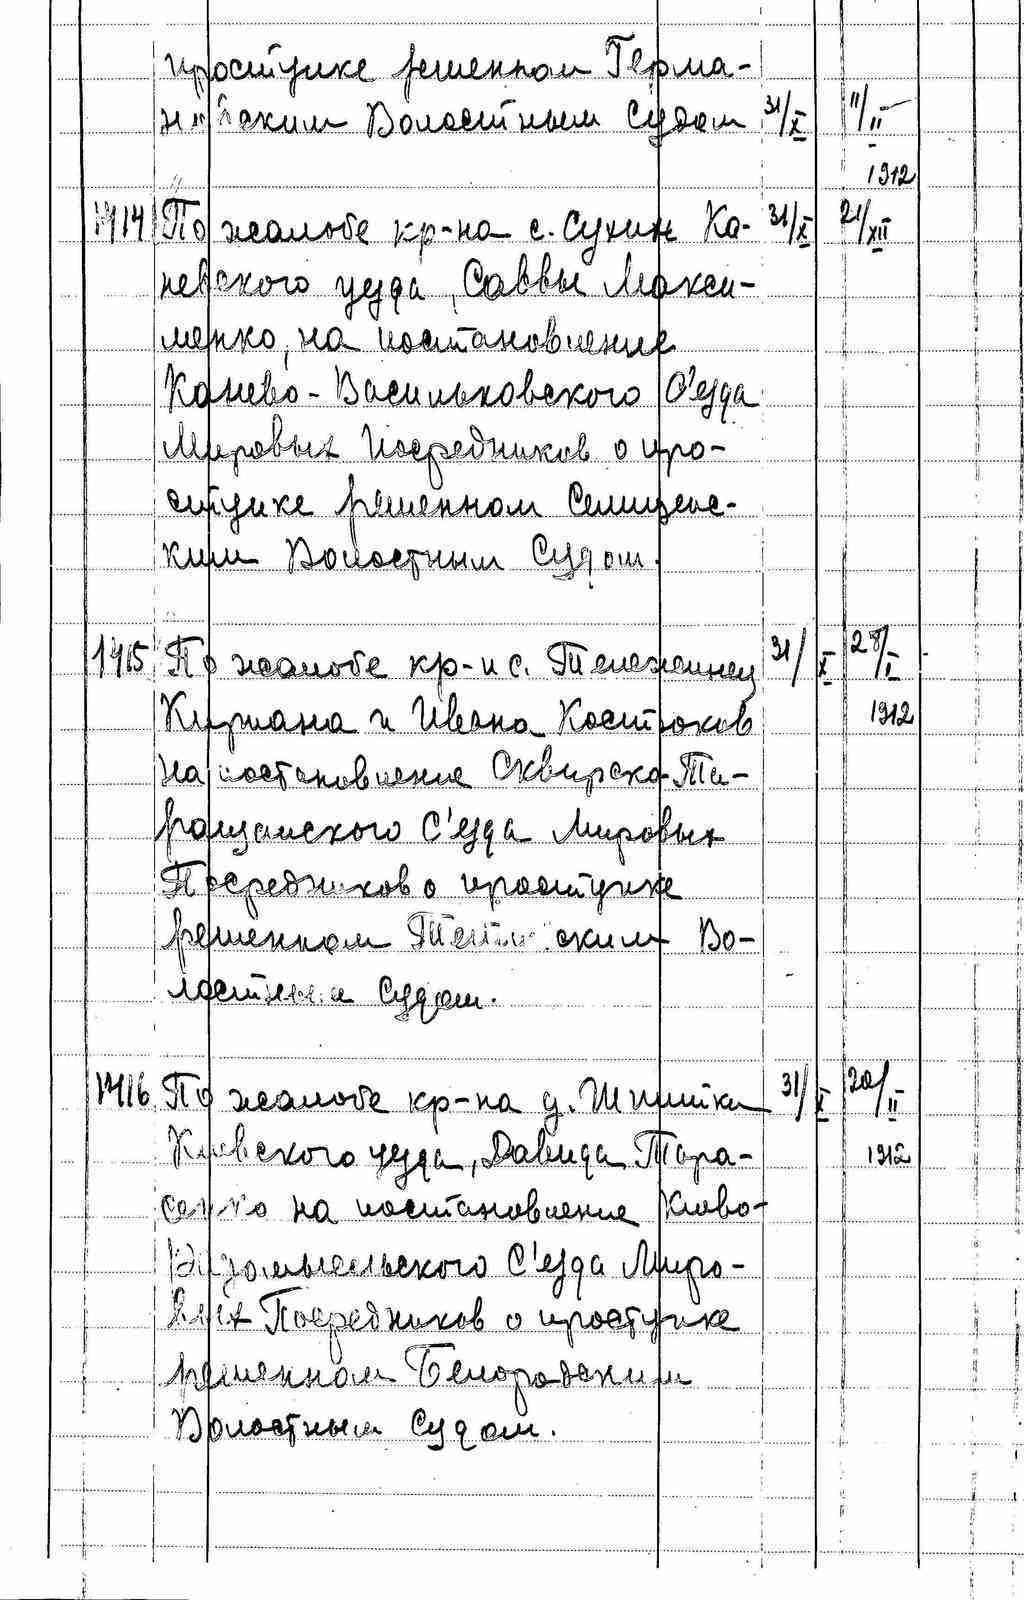 проступке решенном Герма-
ским Волостным Судом 31/X 11/II
1912
1414 По жалобе кр-на с. Сухин Ка- 31/X 21/XII
невского уезда, Саввы Макси-
менко, на постановление
Канево-Васильковского С'езда
Мировых Посредников о про-
ступке решенном Селищенс-
ким Волостным Судом.
1415 По жалобе кр-н с. Тележинец 31/X 28/I
Кириана и Ивана Костюков 1912
на постановление Сквирско-Та-
ращанского С'езда Мировых
Посредников о проступке
решенном ским Во-
лостным Судом.
1416 По жалобе кр-на д. Шпитьки 31/X 20/II
Киевского уезда, Давида Тара- 1912
сенко на постановление Киево-
Радомысльского С'езда Миро-
вых Посредников о проступке
решенном Белгородским
Волостным Судом.